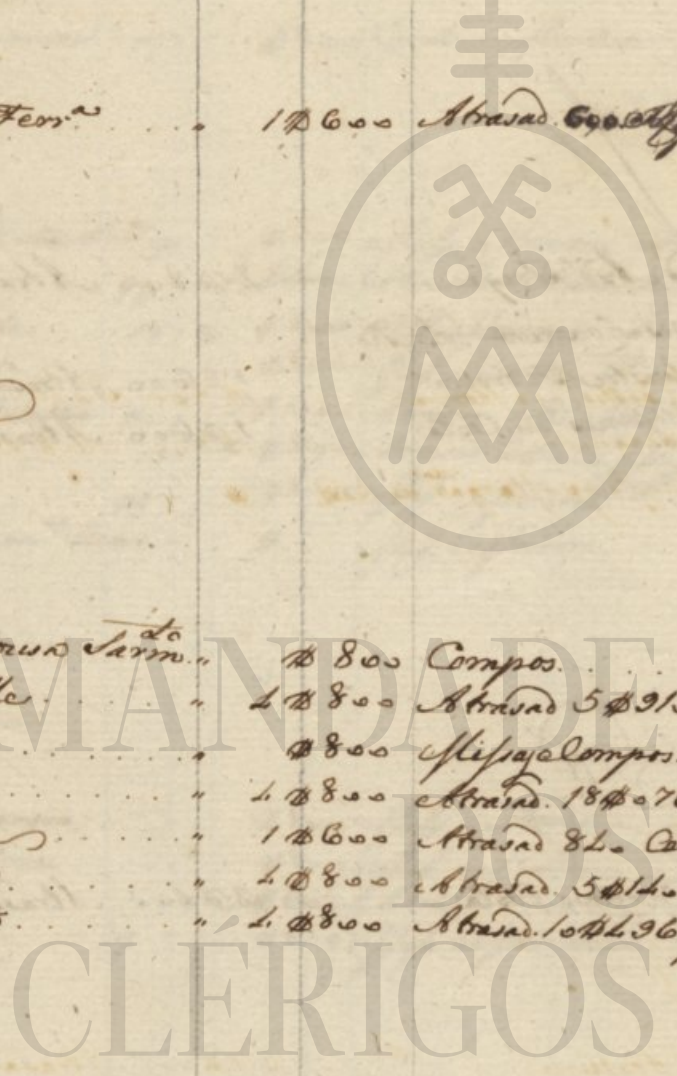 Ferr.ª . . . " 1$600 Atrasad. 600
Sarm.to " $800 Compos. . .
" 4$800 Atrasad 5$91
" $800 Missa, e Compos.
" 4$800 Atrasad. 18$07
" 1$600 Atrasad 840
" 4$800 Atrasad. 5$140
" 4$800 Atrasad. 10$496
MANDADE
DOS
CLÉRIGOS